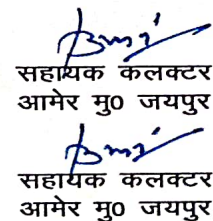 सहायक कलक्टर
आमेर मु0 जयपुर
सहायक कलक्टर
आमेर मु0 जयपुर